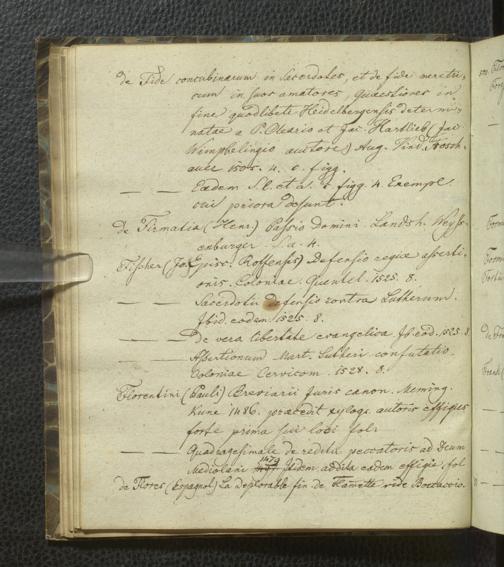 De Fide concubinarum in Sacerdotes, et de fide meretri,
cum in suos amatores quaestiones in
fine quodlibeti Heidelbergensis determi,
natae a P. Oleario et Jac. Hartlieb (Jac
Wimphelingio auctore) Aug. Vind. Frosch,
auer 1505. 4. c. figg.
— — Eadem S. l. et a. c figg. 4 Exempl.
cui priora desunt.
De Firmatia (Henr) Passio Domini. Landsh. Weysse
enburger. S. a. 4.
Fischer (Jo Episc. Roffensis) Defensio regiae asserti,
onis. Coloniae. Quentel. 1525. 8.
— — Sacerdotii defensio contra Lutherum.
Ibid. eodem. 1525. 8.
— — De vera libertate evangelica. Ib. eod. 1525. 8
— — Assertionum Mart. Lutheri confutatio.
Coloniae Cervicorn. 1528. 8.
Florentini (Pauli) Breviarii Juris canon. Meming.
Kune 1486. praecedit xylogr. autoris effigies
forte prima sui loci fol.
— — Quadragesimale de reditu peccatoris ad Deum
Mediolani 1479 Ibidem addita eadem effigie. fol
de Flores (Espagnol) La deplorable fin de Flamette vide Boccaccio.